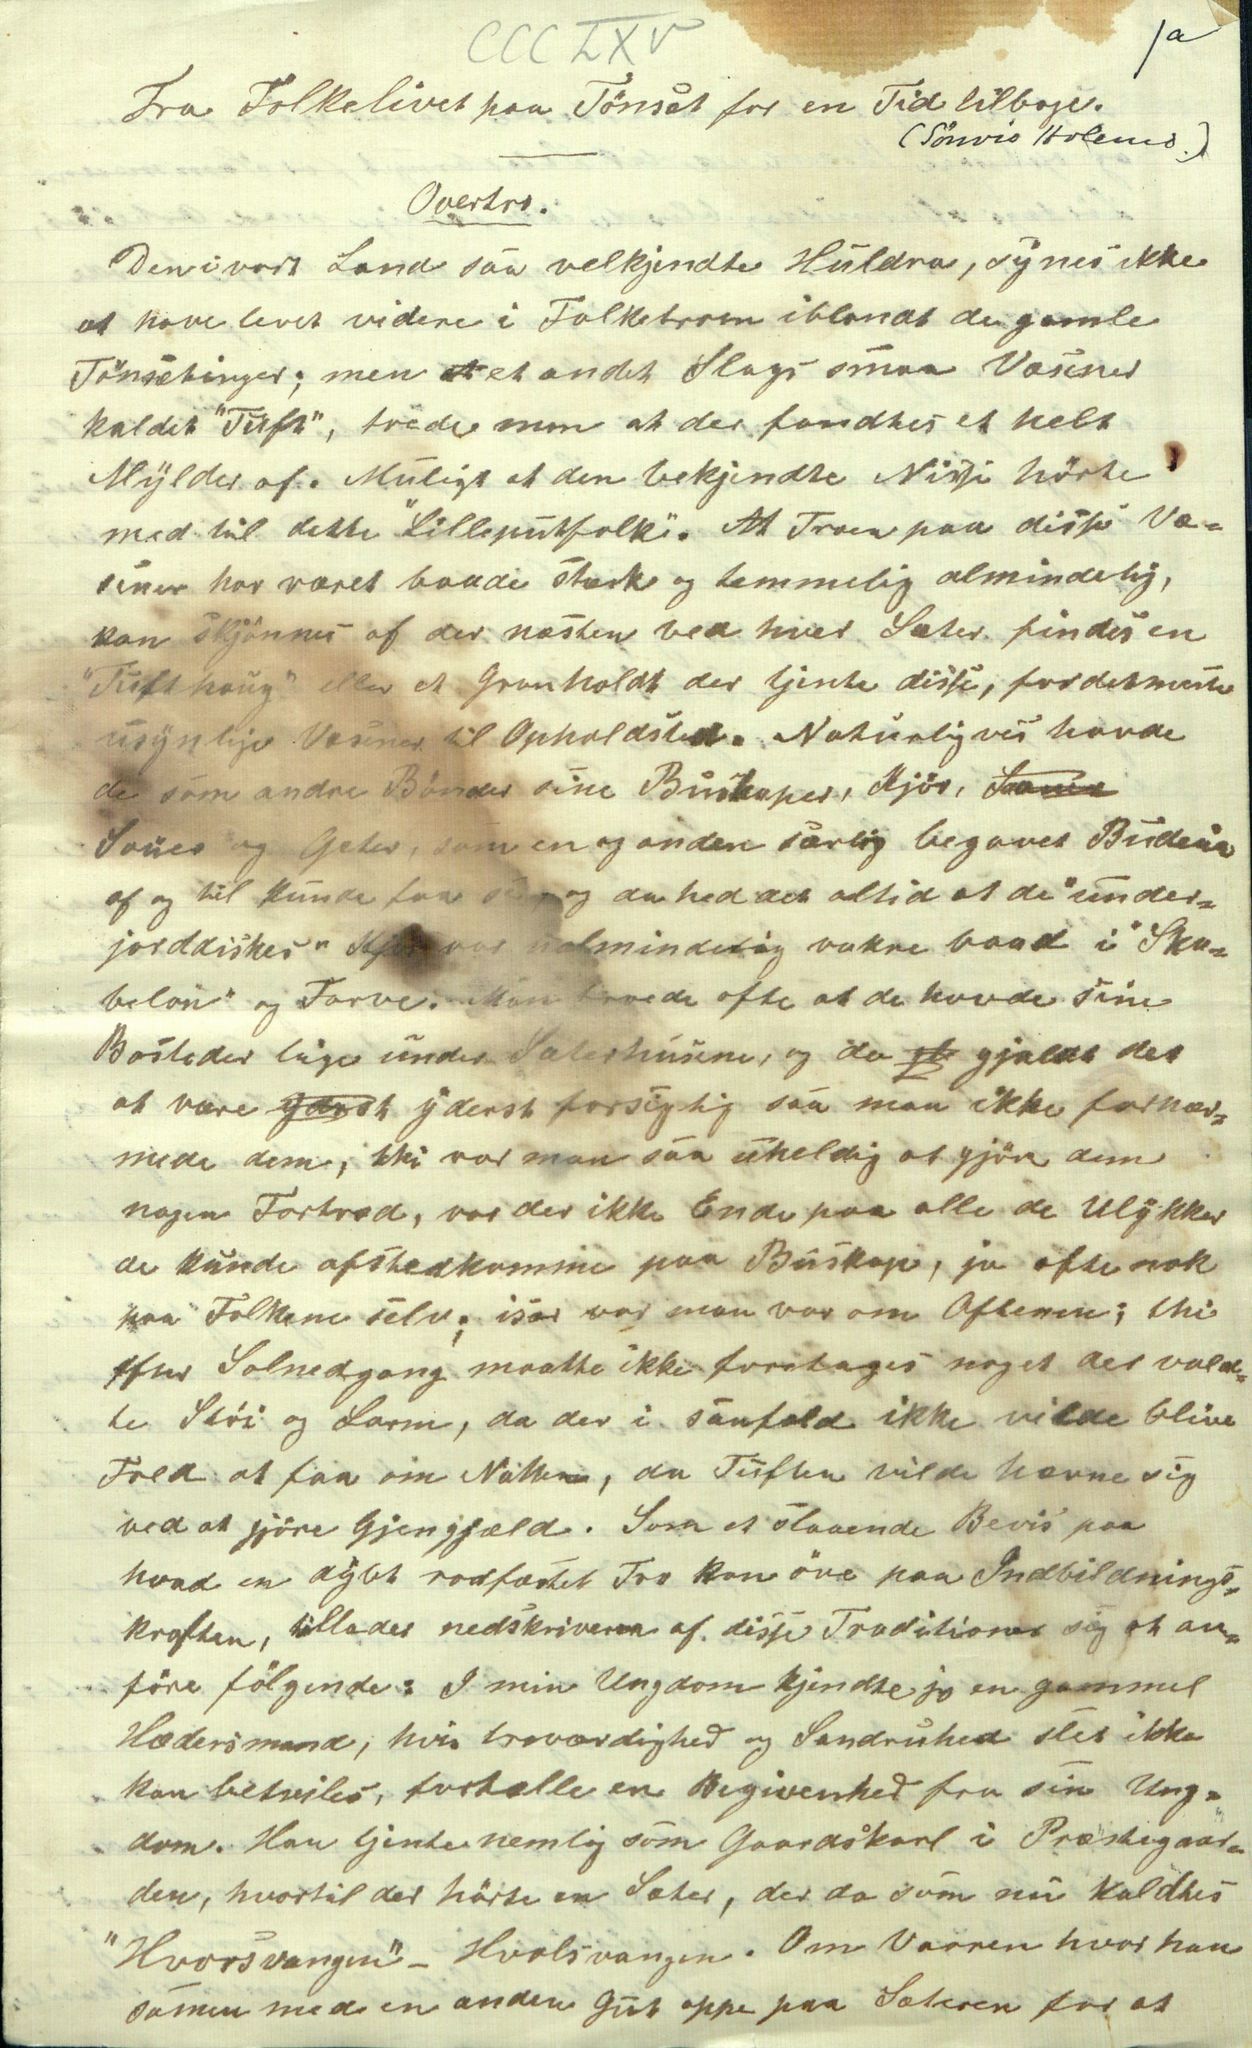 CCCLXV
1a
Fra Folkelivet paa Tönsæt for en Tid tilbage.
(Sönvis Holems.)
Overtro.
Den i vort Land saa velkjendte Huldra, synes ikke
at have levet videre i Folketroen iblandt de gamle
Tönsetinger; men et andet Slags smaa Væsener
kaldet "Tuft", troede man at der fandtes et helt
Mylder af. Muligt at den bekjendte Nisse hörte
med til dette "Lilleputfolk". At Troen paa disse Væ-
sener har været baade stærk og temmelig almindelig,
kan skjönnes af der næsten ved hver Sæter findes en
"Tufthaug" eller et Granholdt der tjente disse, fordetmeste
usynlige Væsener til Opholdsted. Naturligvis havde
de som andre Bönder sine Buskaper, Kjör,
Sauer og Geter, som en og anden særlig begavet Budeia
af og til kunde faa se, og da hed det altid at de "under-
jorddiskes" Kjör var ualmindelig vakre baad i "Ska-
belon" og Farve. Man troede ofte at de havde sine
Bosteder lige under Sæterhusene, og da gjaldt det
at være yderst forsigtig saa man ikke fornær-
mede dem, thi var man saa uheldig at gjöre dem
nogen Fortræd, var der ikke Ende paa alle de Ulykker
de kunde afstedkomme paa Buskape, ja ofte nok
paa Folkene selv; især var man var om Aftenen; thi
efter Solnedgang maatte ikke foretages noget der vold-
te Stöi og Larm, da der i saafald ikke vilde blive
Fred at faa om Natten, da Tuften vilde hævne sig
ved at gjöre Gjengjæld. Som et slaaende Bevis paa
hvad en dybt rodfæstet Tro kan öve paa Indbildnings-
kraften, tillader nedskriveren af disse Traditioner sig at an-
före fölgende: I min Ungdom kjendte jo en gammel
Hædersmand, hvis troværdighed og Sandruhed slet ikke
kan betviles, fortælle en Begivenhed fra sin Ung-
dom. Han tjente nemlig som Gaardskarl i Præstegaar-
den, hvortil der hörte en Sæter, der da som nu kaldtes
"Hvorsvangen" - Hvalsvangen. Om Vaaren hvor han
sammen med en anden Gut oppe paa Sæteren for at